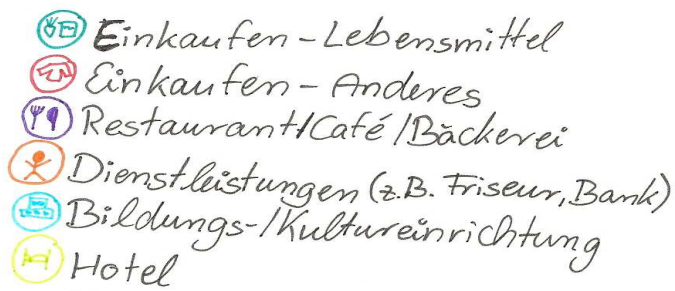 Einkaufen - Lebensmittel
Einkaufen - Anderes
Restaurant/Café/Bäckerei
Dienstleistungen (z.B. Friseur, Bank)
Bildungs-/Kultureinrichtung
Hotel